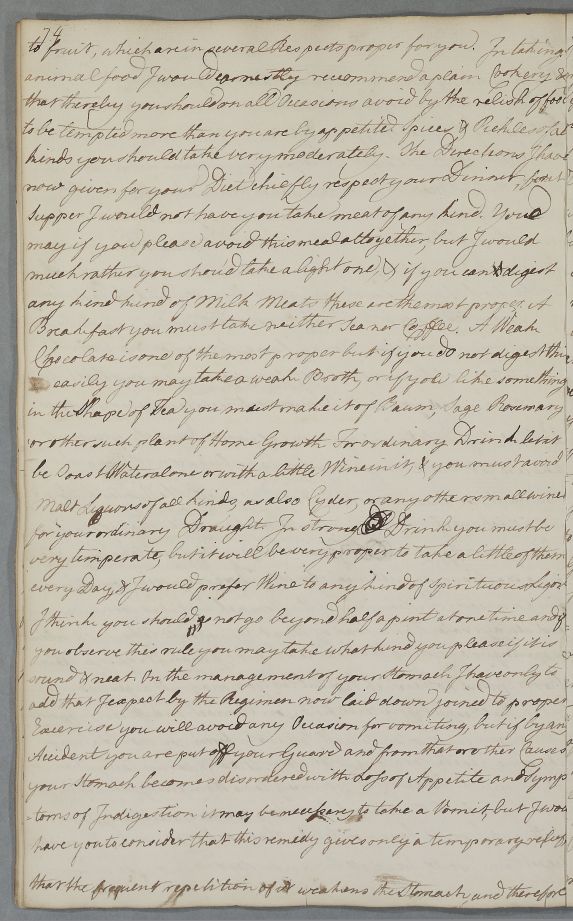 74
to fruit, which are in several Respects proper for you. In taking
animal food I would earnestly recommend a plain Cookery, &
that thereby you should on all Occasions avoid by the relish of food
to be tempted more than you are by appetite. Spices & Pickles of all
kinds you should take very moderately. The Directions I have
now given for your Diet chiefly respect your Dinner, for at
Supper I would not have you take meat of any kind. You
may if you please avoid this meal altogether, but I would
much rather you should take a light one, & if you can digest
any kind kind of Milk Meats these are the most proper. At
Breakfast you must take neither Tea nor Coffee. A Weak
Chocolate is one of the most proper but if you do not digest this
easily you may take a weak Broth, or if you like something
in the Shape of Tea you must make it of Baum, Sage Rosemary
or other such plant of Home Growth For ordinary Drink let it
be Toast Water alone or with a little Wine in it, & you must avoid
Malt Liquors of all kinds, as also Cyder, or any other small wine
for your ordinary Draught. In strong Drink you must be
very temperate, but it will be very proper to take a little of them
every Day, & I would prefer Wine to any kind of Spirituous Liquor
I think you should not go beyond half a pint at one time and if
you observe this rule you may take what kind you please if it is
sound & neat. On the management of your Stomach I have only to
add that I expect by the Regimen now laid down joined to proper
Exercise you will avoid any Occasion for vomiting, but if by an
Accident you are put off your Guard and from that or other Causes
your Stomach becomes disordered with Loss of Appetite and Symp
-toms of Indigestion it may be necessary to take a Vomit, but I wou
have you to consider that this remedy gives only a temporary relief,
that the frequent repetition of it weakens the Stomach, and therefore